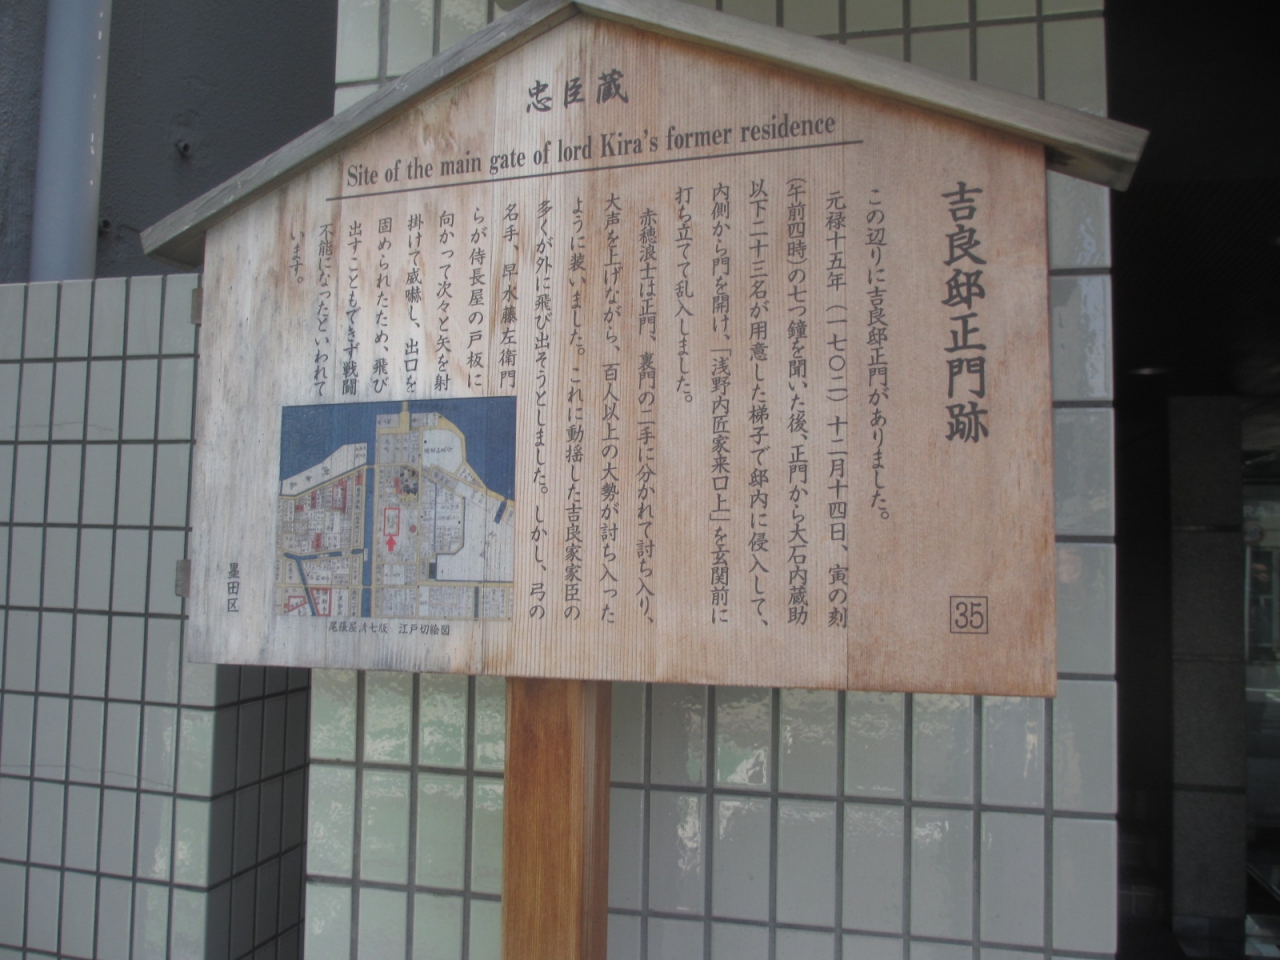 忠臣蔵
Site of the main gate of lord Kira's former residence
吉良邸正門跡
35
この辺りに吉良邸正門がありました。
元禄十五年（一七〇二）十二月十四日、寅の刻
（午前四時）の七つ鐘を聞いた後、正門から大石内蔵助
以下二十三名が用意した梯子で邸内に侵入して、
内側から門を開け、「浅野内匠家来口上」を玄関前に
打ち立てて乱入しました。
赤穂浪士は正門、裏門の二手に分かれて討ち入り、
大声を上げながら、百人以上の大勢が討ち入った
ように装いました。これに動揺した吉良家家臣の
多くが外に飛び出そうとしました。しかし、弓の
名手、早水藤左衛門
らが侍長屋の戸板に
向かって次々と矢を射
掛けて威嚇し、出口を
固められたため、飛び
出すこともできず戦闘
不能になったといわれて
います。
尾張屋清七版 江戸切絵図
墨田区